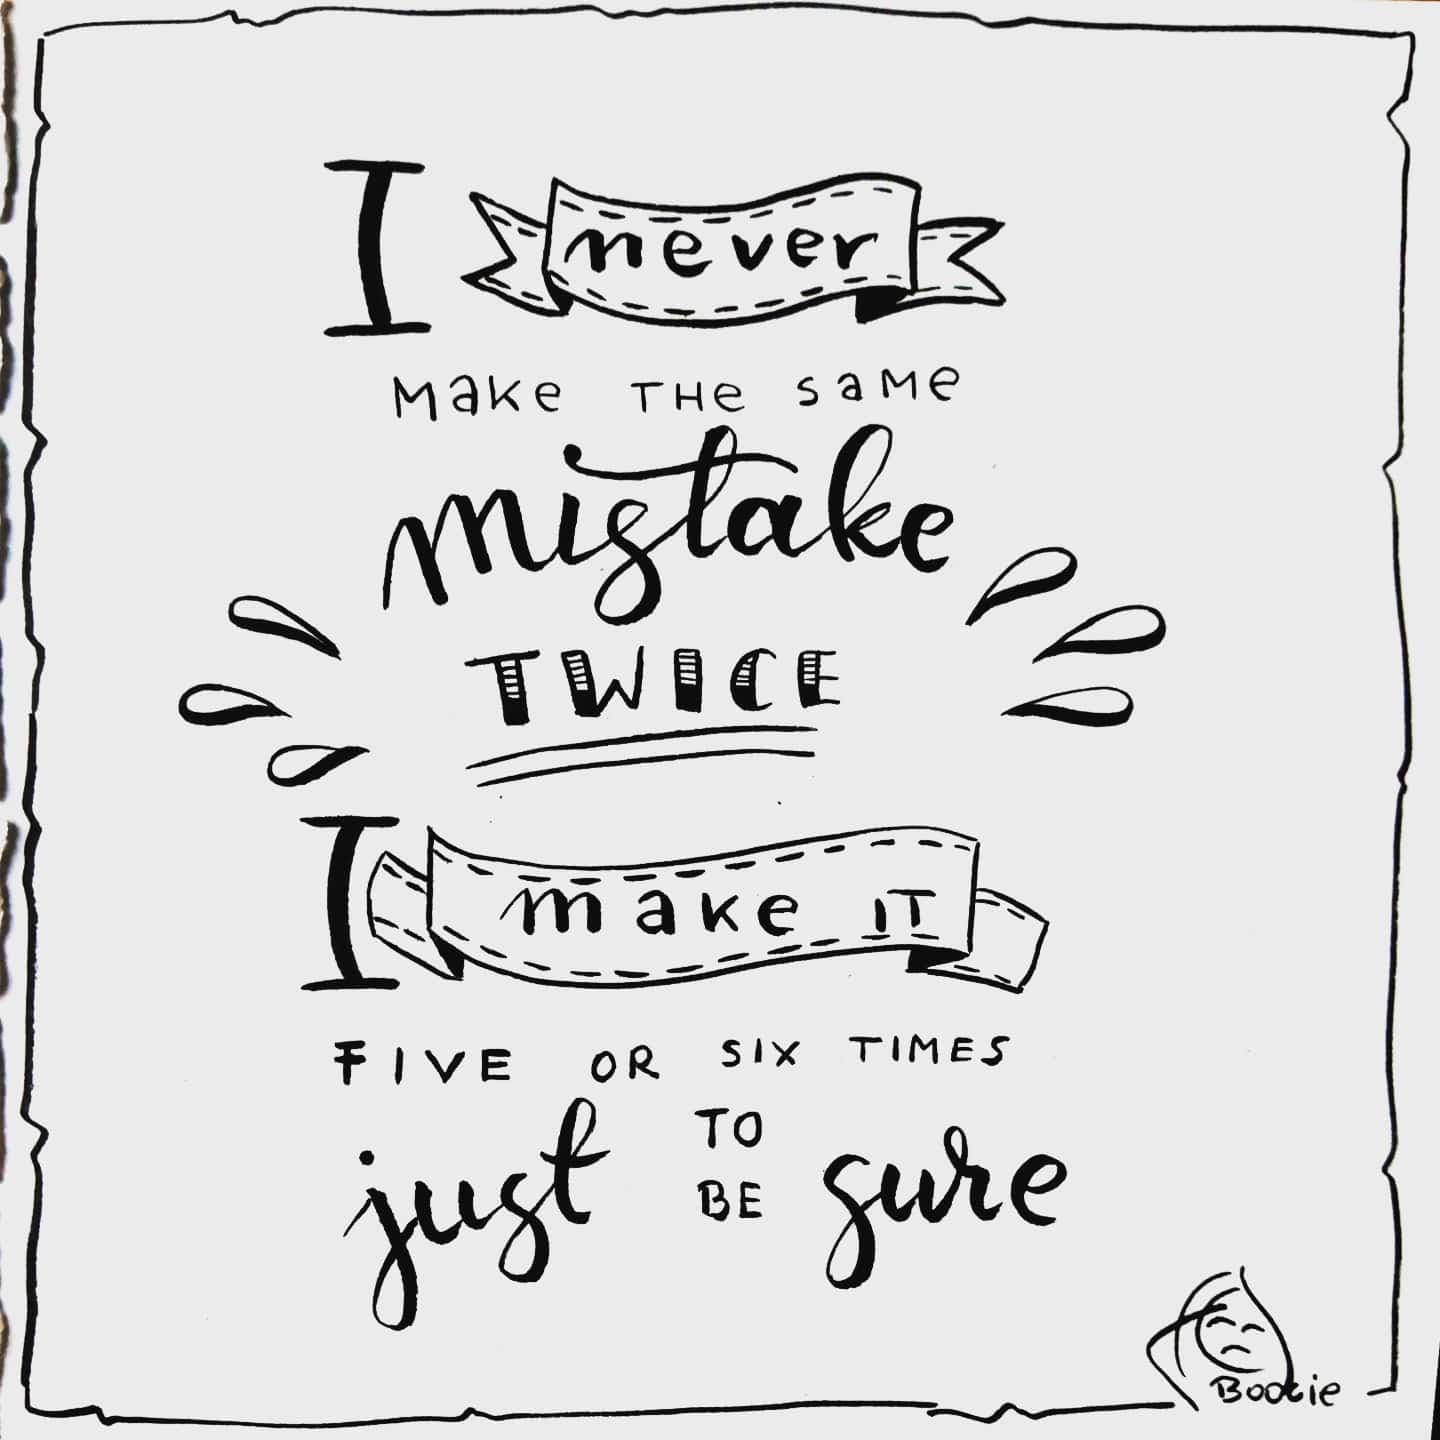 I never
MaKe THe SaMe
mistake
TWICE
I make IT
FIVE OR SIX TIMES
just TO BE sure